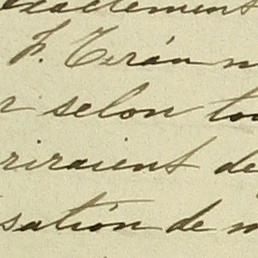 exactement
F. Terán n
r selon to
riraient de
sation de m